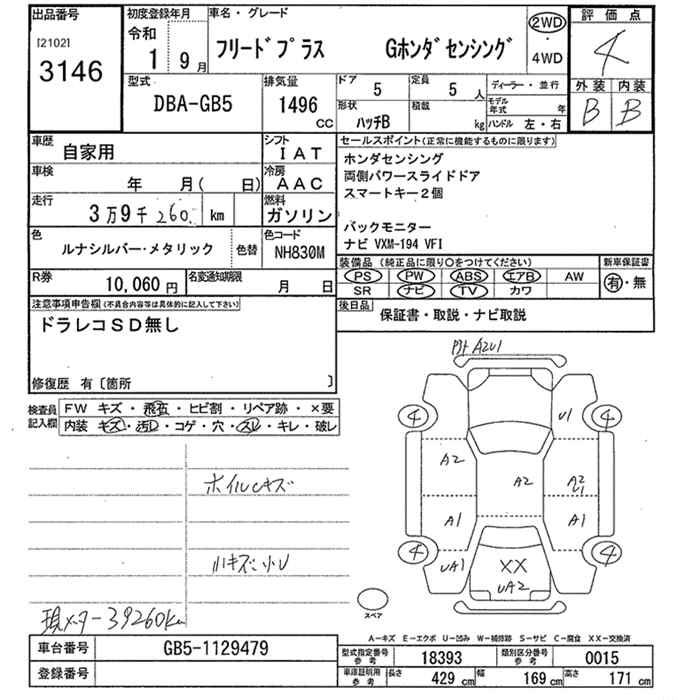 出品番号
[2102]
3146
初度登録年月
令和
1 9月
車名・グレード
フリードプラス Gホンダセンシング
2WD
・
4WD
評価点
4
外装 内装
B B
型式
DBA-GB5
排気量
1496
cc
ドア
5
定員
5人
ディーラー・並行
形状
ハッチB
積載
kg
モデル年式
年
ハンドル 左・右
車歴
自家用
シフト
IAT
車検
年 月( 日)
冷房
AAC
走行
3万9千260 km
燃料
ガソリン
色
ルナシルバー・メタリック
色替
色コード
NH830M
R券
10,060円
名変通知期限
月 日
セールスポイント(正常に機能するものに限ります)
ホンダセンシング
両側パワースライドドア
スマートキー2個
バックモニター
ナビ VXM-194 VFI
装備品(純正品に限り○をつけてください)
PS PW ABS エアB AW
SR ナビ TV カワ
新車保証書
有・無
後日品
保証書・取説・ナビ取説
注意事項申告欄(不具合内容等は具体的に記入して下さい)
ドラレコSD無し
修復歴 有〔箇所 〕
検査員
記入欄
FW キズ・飛石・ヒビ割・リペア跡・×要
内装 キズ・汚レ・コゲ・穴・スレ・キレ・破レ
ホイルキズ
小キズ小U
現メーター39260km
A2U1
4
U1
4
A2
A2
A2
U1
A1
A1
4
UA1
XX
UA2
4
スペア
A－キズ E－エクボ U－凹み W－補修跡 S－サビ C－腐食 XX－交換済
車台番号
GB5-1129479
登録番号
型式指定番号
参考
18393
類別区分番号
参考
0015
車庫証明用
参考
長さ
429 cm
幅
169 cm
高さ
171 cm